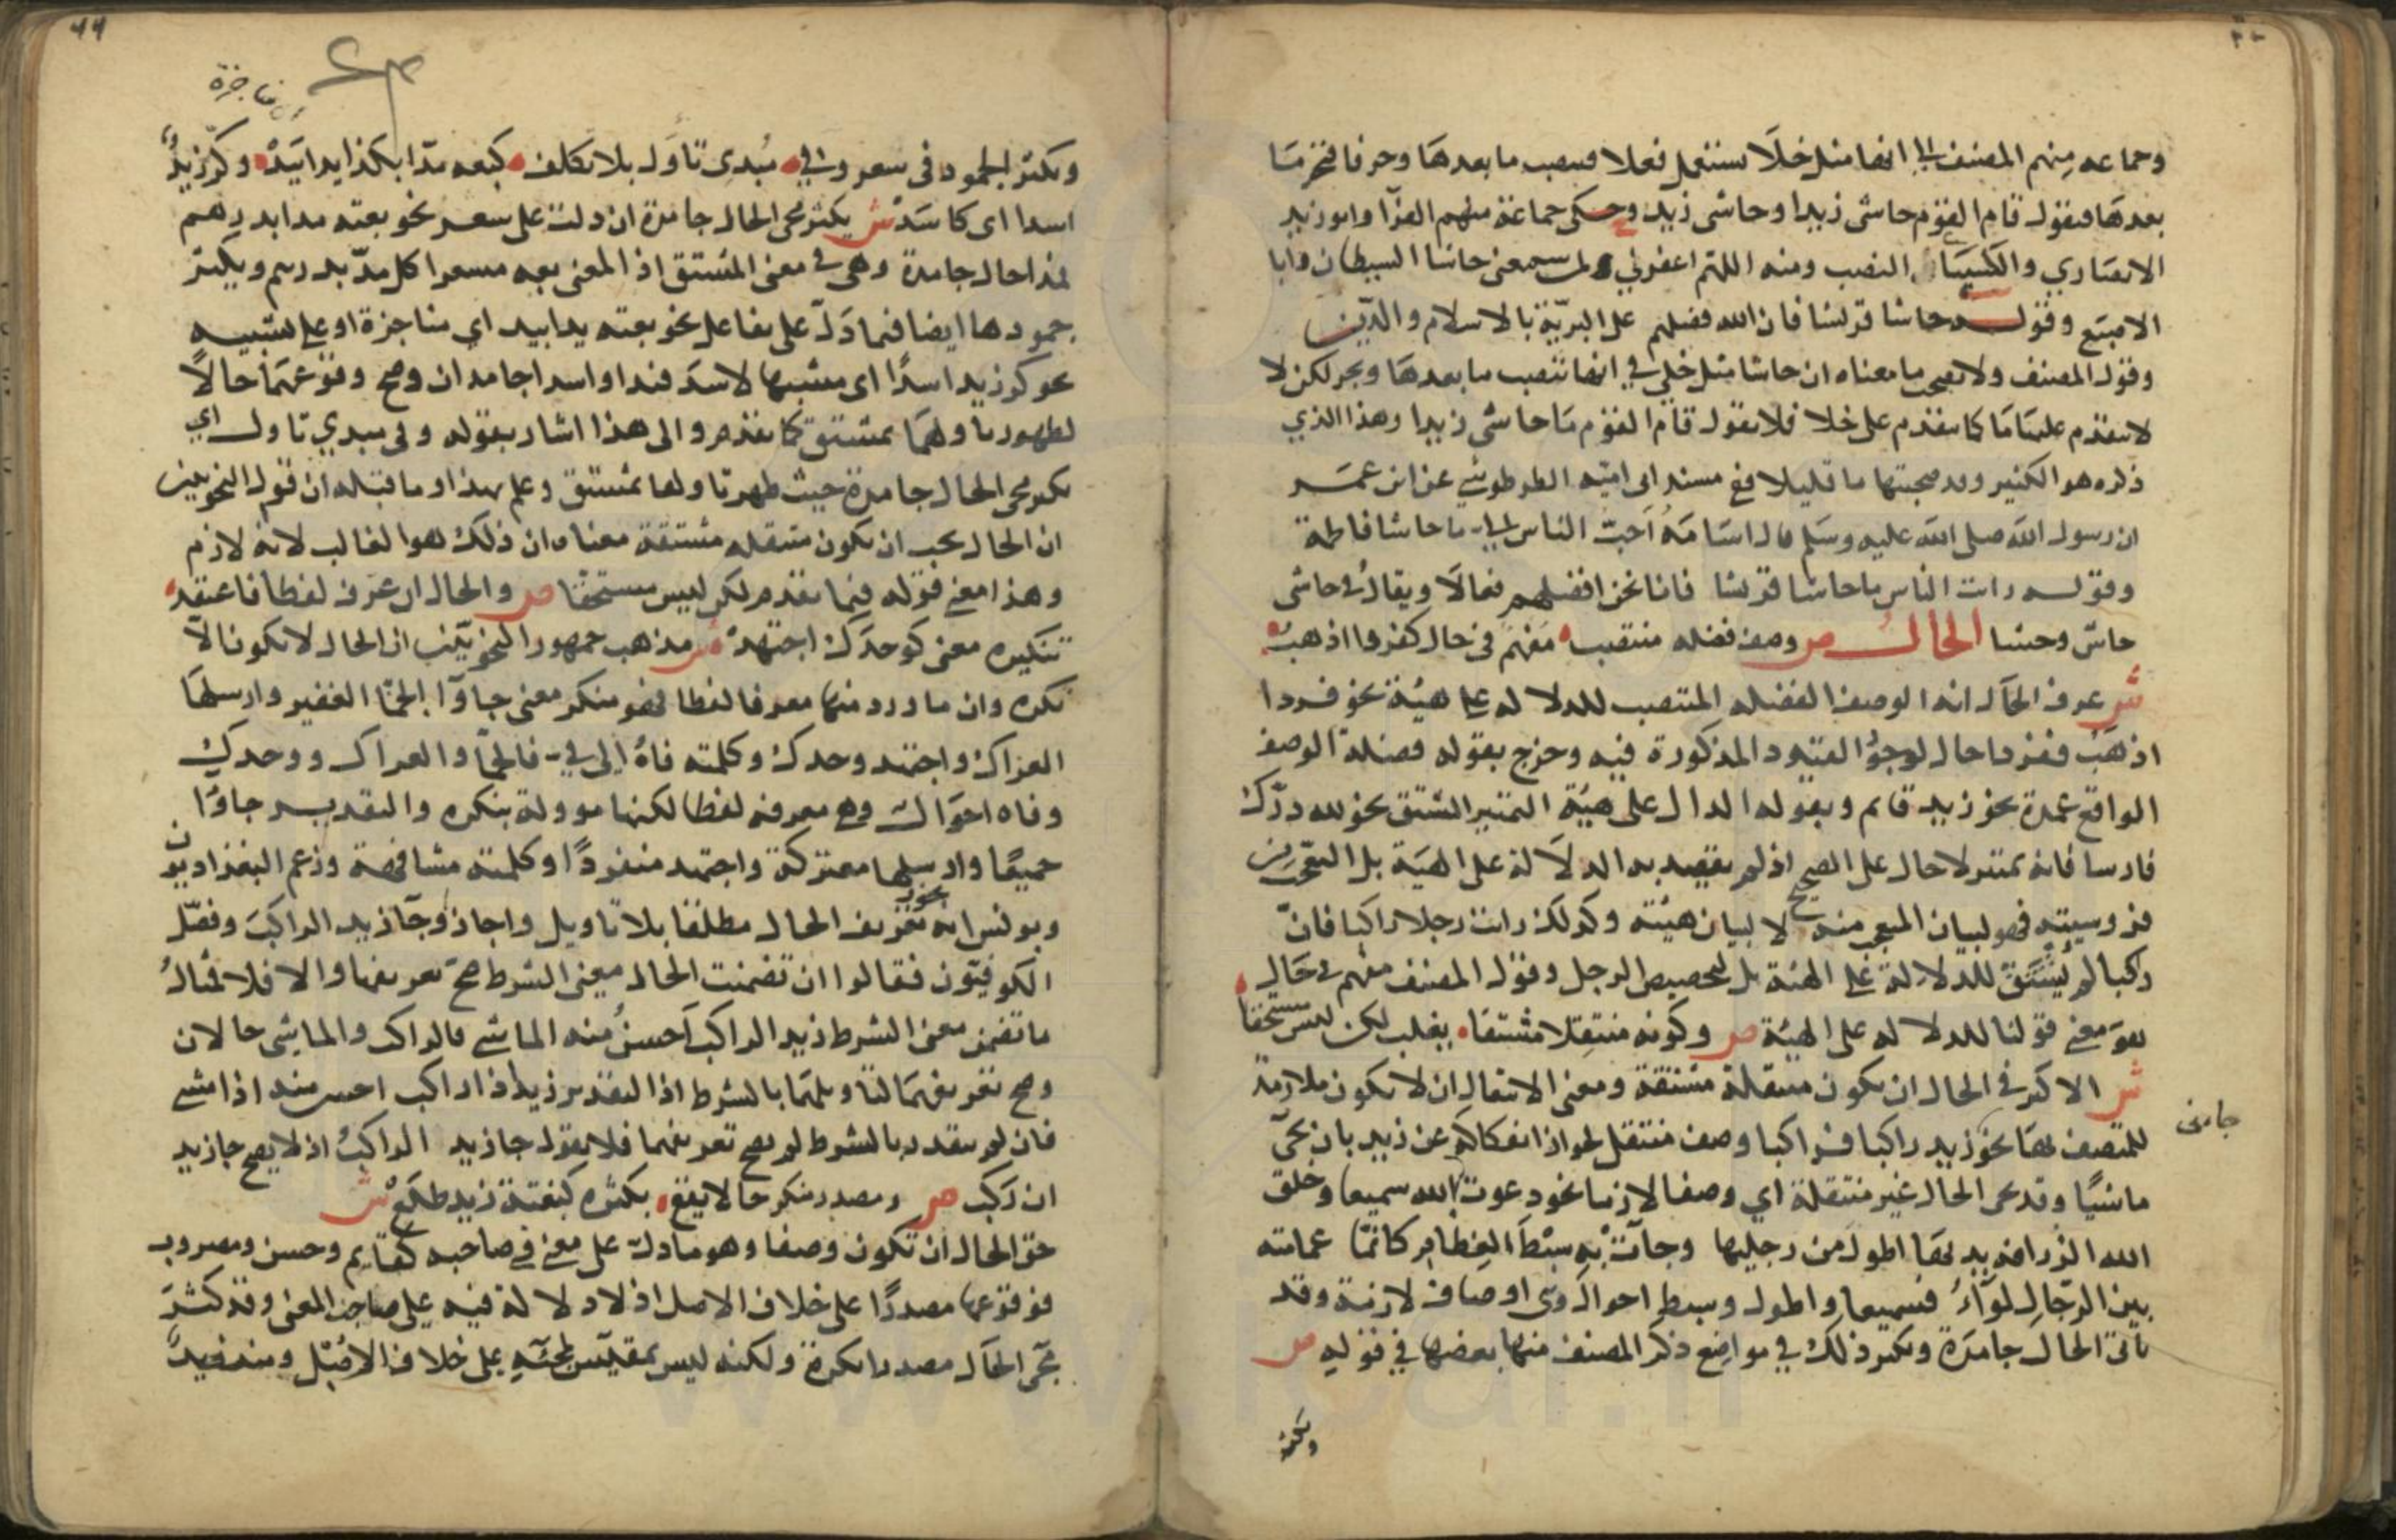 وجماعه منهم المصنف الى انها مثل خلا تستعمل فعلا فتنصب ما بعدها وحرفا فتجر ما
بعدها فتقول قام القوم حاشى زيدا وحاشى زيد وحكى جماعة منهم الفرا وابو زيد
الانصاري والشيباني النصب ومنه اللهم اغفر لي ولمن سمع حاشا الشيطان وابا
الاصبع وقوله حاشا قريشا فان الله فضلهم على البرية بالاسلام والدين
وقول المصنف ولا تصحب ما معناه ان حاشا مثل خلى في انها تنصب ما بعدها وتجر لكن لا
لا تتقدم عليها ما كما تتقدم على خلا فلا تقول قام القوم ما حاشى زيدا وهذا الذي
ذكره هو الكثير وقد صحبتها ما قليلا ففي مسند ابى اميه الطرطوسي عن ابن عمر
ان رسول الله صلى الله عليه وسلم قال اسامة احب الناس الي ما حاشا فاطمة
وقوله رايت الناس ما حاشا قريشا فانا نحن افضلهم فعالا ويقال في حاشى
حاش وحشا الحال ص وصف فضله منتصب مفهم فى حال كفردا اذهب
ش عرف الحال انه الوصف الفضله المنتصب للدلاله على هيئة نحو فردا
اذهب ففردا حال لوجود القيود المذكورة فيه وخرج بقوله فضلة الوصف
الواقع عمدة نحو زيد قايم وبقوله الدال على هيئة التمييز المشتق نحو لله درك
فارسا فانه تمييز لا حال على الصحيح اذ لم يقصد به الدلالة على الهية بل التعجب من
فروسيته فهو لبيان المتعجب منه لا لبيان هيئته وكذلك رايت رجلا راكبا فان
راكبا لم يشتق للدلالة على الهئة بل لتخصيص الرجل وقول المصنف مفهم في حال
هو معنى قولنا للدلاله على الهيئة ص وكونه منتقلا مشتقا يغلب لكن ليس مستحقا
ش الاكثر في الحال ان تكون منتقلة مشتقة ومعنى الانتقال ان لا تكون ملازمة
للمتصف بها نحو زيد راكبا فراكبا وصف منتقل لجواز انفكاكه عن زيد بان يجئ
جا منى
ماشيا وقد تجى الحال غير منتقلة اي وصفا لازما نحو دعوت الله سميعا وخلق
الله الزرافه يديها اطول من رجليها وجات به سبط العظام كانما عمامته
بين الرجال لواء فسميعا واطول وسبط احوال وهى اوصاف لازمة وقد
تاتى الحال جامدة ويكثر ذلك في مواضع ذكر المصنف منها بعضها في قوله ص
ويكثر
٤٤
مناجزة
ويكثر الجمود فى سعر وفي مبدى تاول بلا تكلف كبعه مدا بكذا يدا بيد وكر زيد
اسدا اى كاسد ش يكثر مجى الحال جامدة ان دلت على سعر نحو بعته مدا بدرهم
فمدا حال جامدة وهى في معنى المشتق اذ المعنى بعه مسعرا كل مد بدرهم ويكثر
جمودها ايضا فيما دل على تفاعل نحو بعته يدا بيد اي مناجزة او على تشبيه
نحو كر زيد اسدا اى مشبها لاسد فيدا واسدا جامدان وصح وقوعهما حالا
لظهور تاولهما بمشتق كما تقدم والى هذا اشار بقوله وفى مبدي تاول اي
يكثر مجى الحال جامدة حيث ظهر تاولها بمشتق وعلم بهذا وما قبله ان قول النحويين
ان الحال يجب ان تكون منتقله مشتقة معناه ان ذلك هو الغالب لا انه لازم
وهذا معنى قوله فيما تقدم لكن ليس مستحقا ص والحال ان عرف لفظا فاعتقد
تنكيره معنى كوحدك اجتهد ش مذهب جمهور النحويين ان الحال لا تكون الا
نكره وان ما ورد منها معرفا لفظا فهو منكر معنى جاوا الجما الغفير وارسلها
العراك واجتهد وحدك وكلمته فاه الى في فالجما والعراك ووحدك
وفاه احوال وهى معرفه لفظا لكنها موولة بنكره والتقدير جاوا
جميعا وارسلها معتركة واجتهد منفردا وكلمته مشافهة وزعم البغداديون
ويونس انه يجوز تعريف الحال مطلقا بلا تاويل واجازوا جا زيد الراكب وفصل
الكوفيون فقالوا ان تضمنت الحال معنى الشرط صح تعريفها والا فلا فمثال
ما تضمن معنى الشرط زيد الراكب احسن منه الماشي فالراكب والماشى حالان
وصح تعريفهما لتاويلهما بالشرط اذ التقدير زيد اذا راكب احسن منه اذا مشي
فان لم يتقدر بالشرط لم يصح تعريفهما فلا تقول جا زيد الراكب اذ لا يصح جا زيد
ان ركب ص ومصدر منكر حالا يقع بكثره كبغتة زيد طلع ش
حق الحال ان تكون وصفا وهو ما دل على معنى في صاحبه كقايم وحسن ومضروب
فوقوعها مصدرا على خلاف الاصل اذ لا دلالة فيه على صاحب المعنى وقد كثر
مجى الحال مصدرا نكرة ولكنه ليس بمقيس لمجئيه على خلاف الاصل ومنه